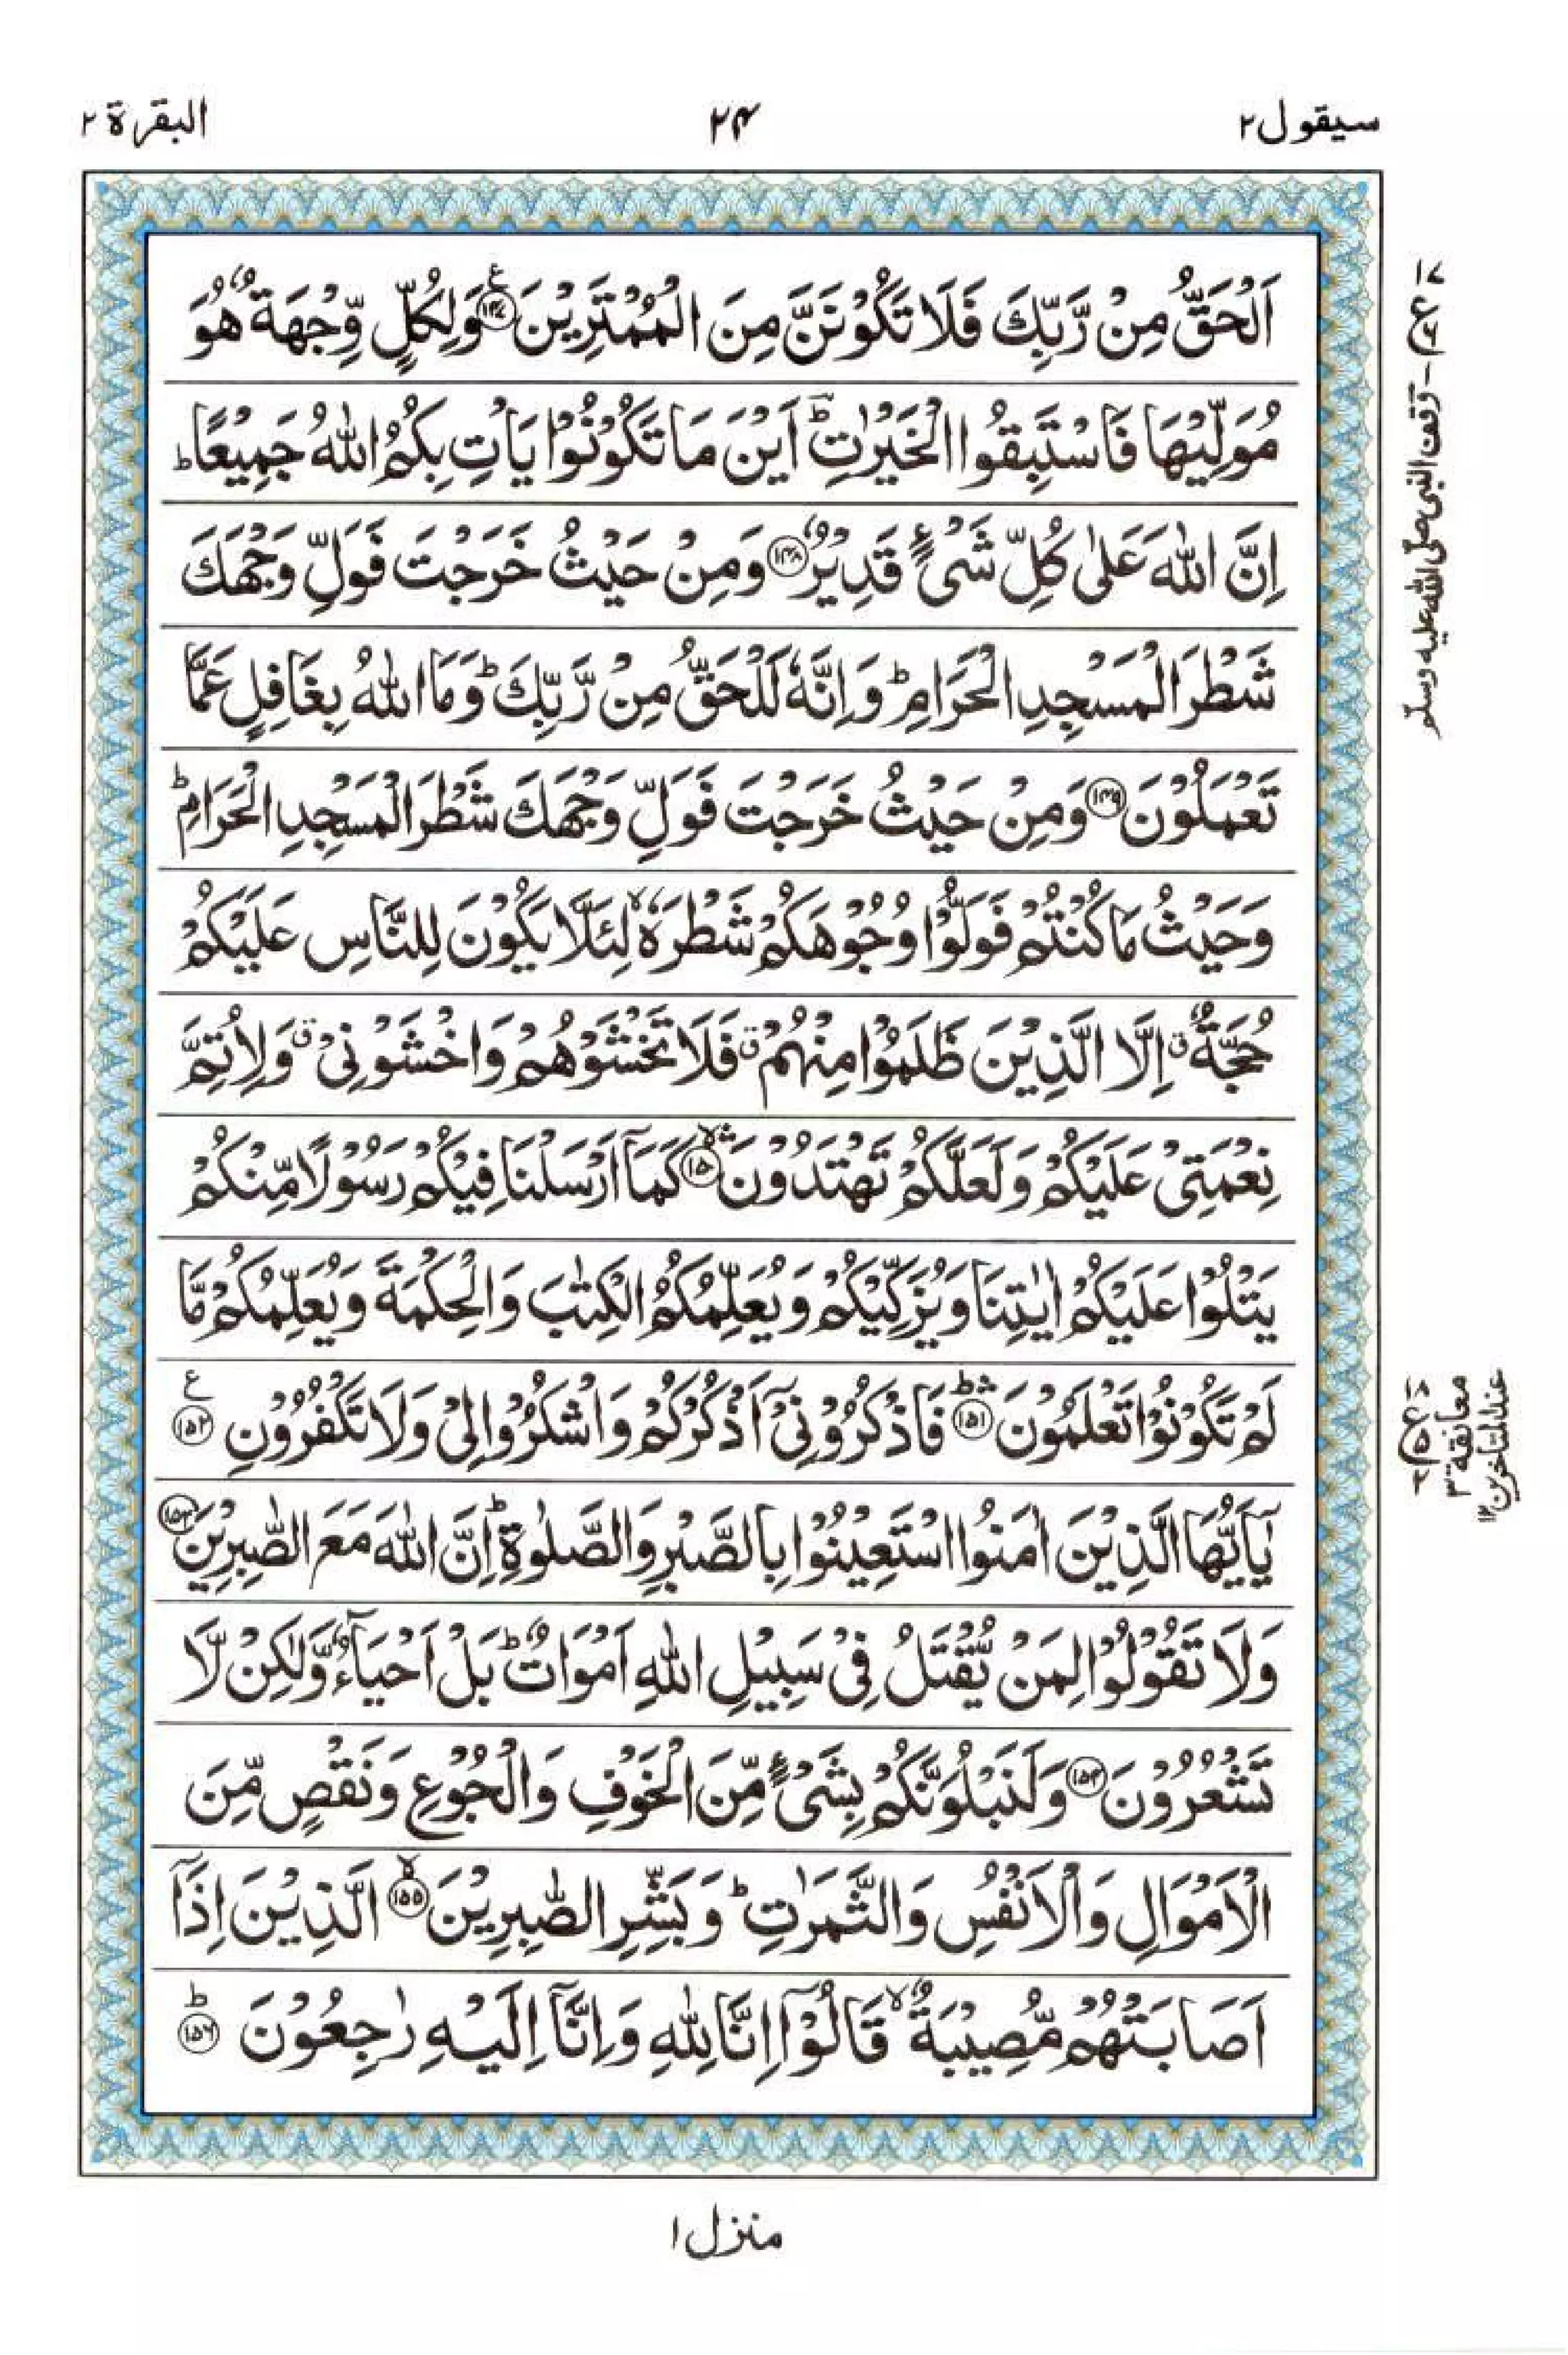 سيقول ٢
٢٤
البقرة ٢
اَلْحَقُّ مِنْ رَّبِّكَ فَلَا تَكُوْنَنَّ مِنَ الْمُمْتَرِيْنَ ﴿١٤٧﴾ۧ وَلِكُلٍّ وِّجْهَةٌ هُوَ
مُوَلِّيْهَا فَاسْتَبِقُوا الْخَيْرٰتِ ؕ اَيْنَ مَا تَكُوْنُوْا يَاْتِ بِكُمُ اللّٰهُ جَمِيْعًا ؕ
اِنَّ اللّٰهَ عَلٰى كُلِّ شَىْءٍ قَدِيْرٌ ﴿١٤٨﴾ وَمِنْ حَيْثُ خَرَجْتَ فَوَلِّ وَجْهَكَ
شَطْرَ الْمَسْجِدِ الْحَرَامِ ؕ وَاِنَّهٗ لَلْحَقُّ مِنْ رَّبِّكَ ؕ وَمَا اللّٰهُ بِغَافِلٍ عَمَّا
تَعْمَلُوْنَ ﴿١٤٩﴾ وَمِنْ حَيْثُ خَرَجْتَ فَوَلِّ وَجْهَكَ شَطْرَ الْمَسْجِدِ الْحَرَامِ ؕ
وَحَيْثُ مَا كُنْتُمْ فَوَلُّوْا وُجُوْهَكُمْ شَطْرَهٗ ۙ لِئَلَّا يَكُوْنَ لِلنَّاسِ عَلَيْكُمْ
حُجَّةٌ ۗ اِلَّا الَّذِيْنَ ظَلَمُوْا مِنْهُمْ ۗ فَلَا تَخْشَوْهُمْ وَاخْشَوْنِىْ ۗ وَلِاُتِمَّ
نِعْمَتِىْ عَلَيْكُمْ وَلَعَلَّكُمْ تَهْتَدُوْنَ ۛۙ ﴿١٥٠﴾ كَمَاۤ اَرْسَلْنَا فِيْكُمْ رَسُوْلًا مِّنْكُمْ
يَتْلُوْا عَلَيْكُمْ اٰيٰتِنَا وَيُزَكِّيْكُمْ وَيُعَلِّمُكُمُ الْكِتٰبَ وَالْحِكْمَةَ وَيُعَلِّمُكُمْ مَّا
لَمْ تَكُوْنُوْا تَعْلَمُوْنَ ۛؕ ﴿١٥١﴾ فَاذْكُرُوْنِىْۤ اَذْكُرْكُمْ وَاشْكُرُوْا لِىْ وَلَا تَكْفُرُوْنِ ﴿١٥٢﴾ۧ
يٰۤاَيُّهَا الَّذِيْنَ اٰمَنُوا اسْتَعِيْنُوْا بِالصَّبْرِ وَالصَّلٰوةِ ؕ اِنَّ اللّٰهَ مَعَ الصّٰبِرِيْنَ ﴿١٥٣﴾
وَلَا تَقُوْلُوْا لِمَنْ يُّقْتَلُ فِىْ سَبِيْلِ اللّٰهِ اَمْوَاتٌ ؕ بَلْ اَحْيَآءٌ وَّلٰكِنْ لَّا
تَشْعُرُوْنَ ﴿١٥٤﴾ وَلَنَبْلُوَنَّكُمْ بِشَىْءٍ مِّنَ الْخَوْفِ وَالْجُوْعِ وَنَقْصٍ مِّنَ
الْاَمْوَالِ وَالْاَنْفُسِ وَالثَّمَرٰتِ ؕ وَبَشِّرِ الصّٰبِرِيْنَ ۙ ﴿١٥٥﴾ الَّذِيْنَ اِذَاۤ
اَصَابَتْهُمْ مُّصِيْبَةٌ ۙ قَالُوْۤا اِنَّا لِلّٰهِ وَاِنَّاۤ اِلَيْهِ رٰجِعُوْنَ ؕ ﴿١٥٦﴾
وقف النبى صلى الله عليه وسلم
معانقة ٣
عند المتاخرين ١٢
منزل ١